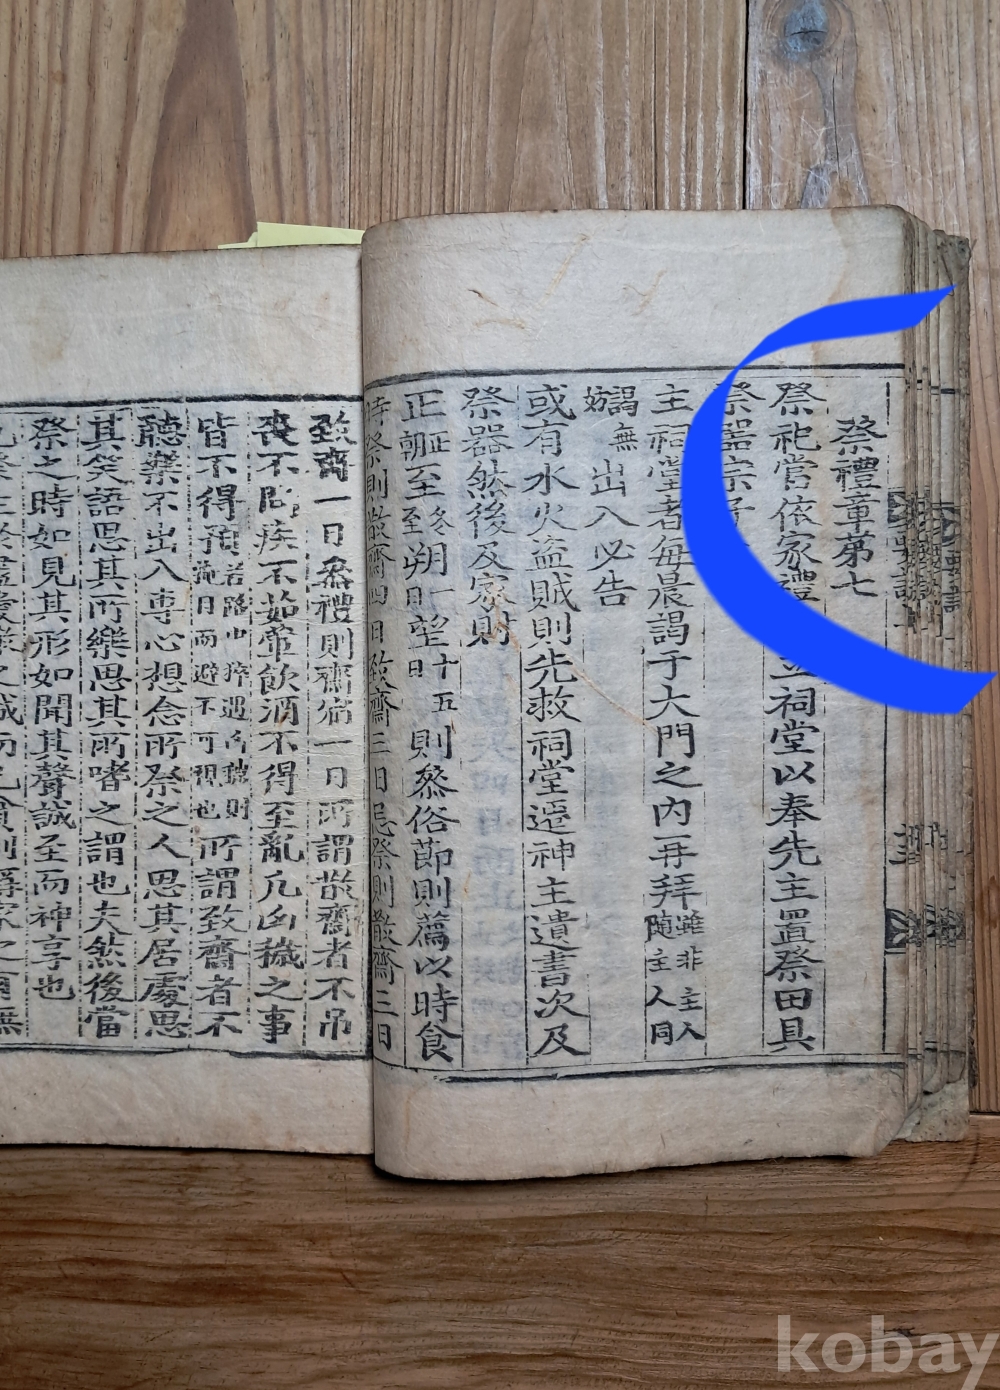 祭禮章第七
祭祀當依家禮立祠堂以奉先主置祭田具
祭器宗子
主祠堂者每晨謁于大門之内再拜雖非主人隨主人同
謁無妨出入必告
或有水火盗賊則先救祠堂遷神主遺書次及
祭器然後及家財
正正朝至冬至朔一日望十五日則叅俗節則薦以時食
時祭則散齋四日致齋三日忌祭則散齋三日
致齋一日叅禮則齋宿一日所謂散齋者不吊
喪不問疾不茹葷飲酒不得至亂凡凶穢之事
皆不得預若路中猝遇凶穢則掩目而避不可視也所謂致齋者不
聽樂不出入專心想念所祭之人思其居處思
其笑語思其所樂思其所嗜之謂也夫然後當
祭之時如見其形如聞其聲誠至而神享也
凡祭主於盡愛敬之誠而已貧則稱家之有無
kobay